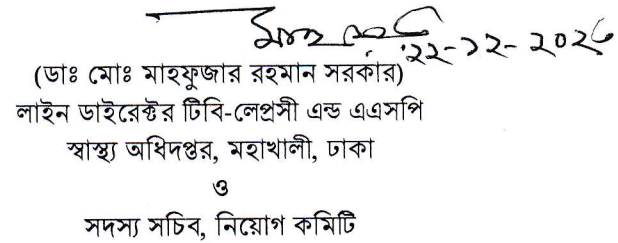 ২২-১২-২০২৬
(ডাঃ মোঃ মাহফুজার রহমান সরকার)
লাইন ডাইরেক্টর টিবি-লেপ্রসী এন্ড এএসপি
স্বাস্থ্য অধিদপ্তর, মহাখালী, ঢাকা
ও
সদস্য সচিব, নিয়োগ কমিটি